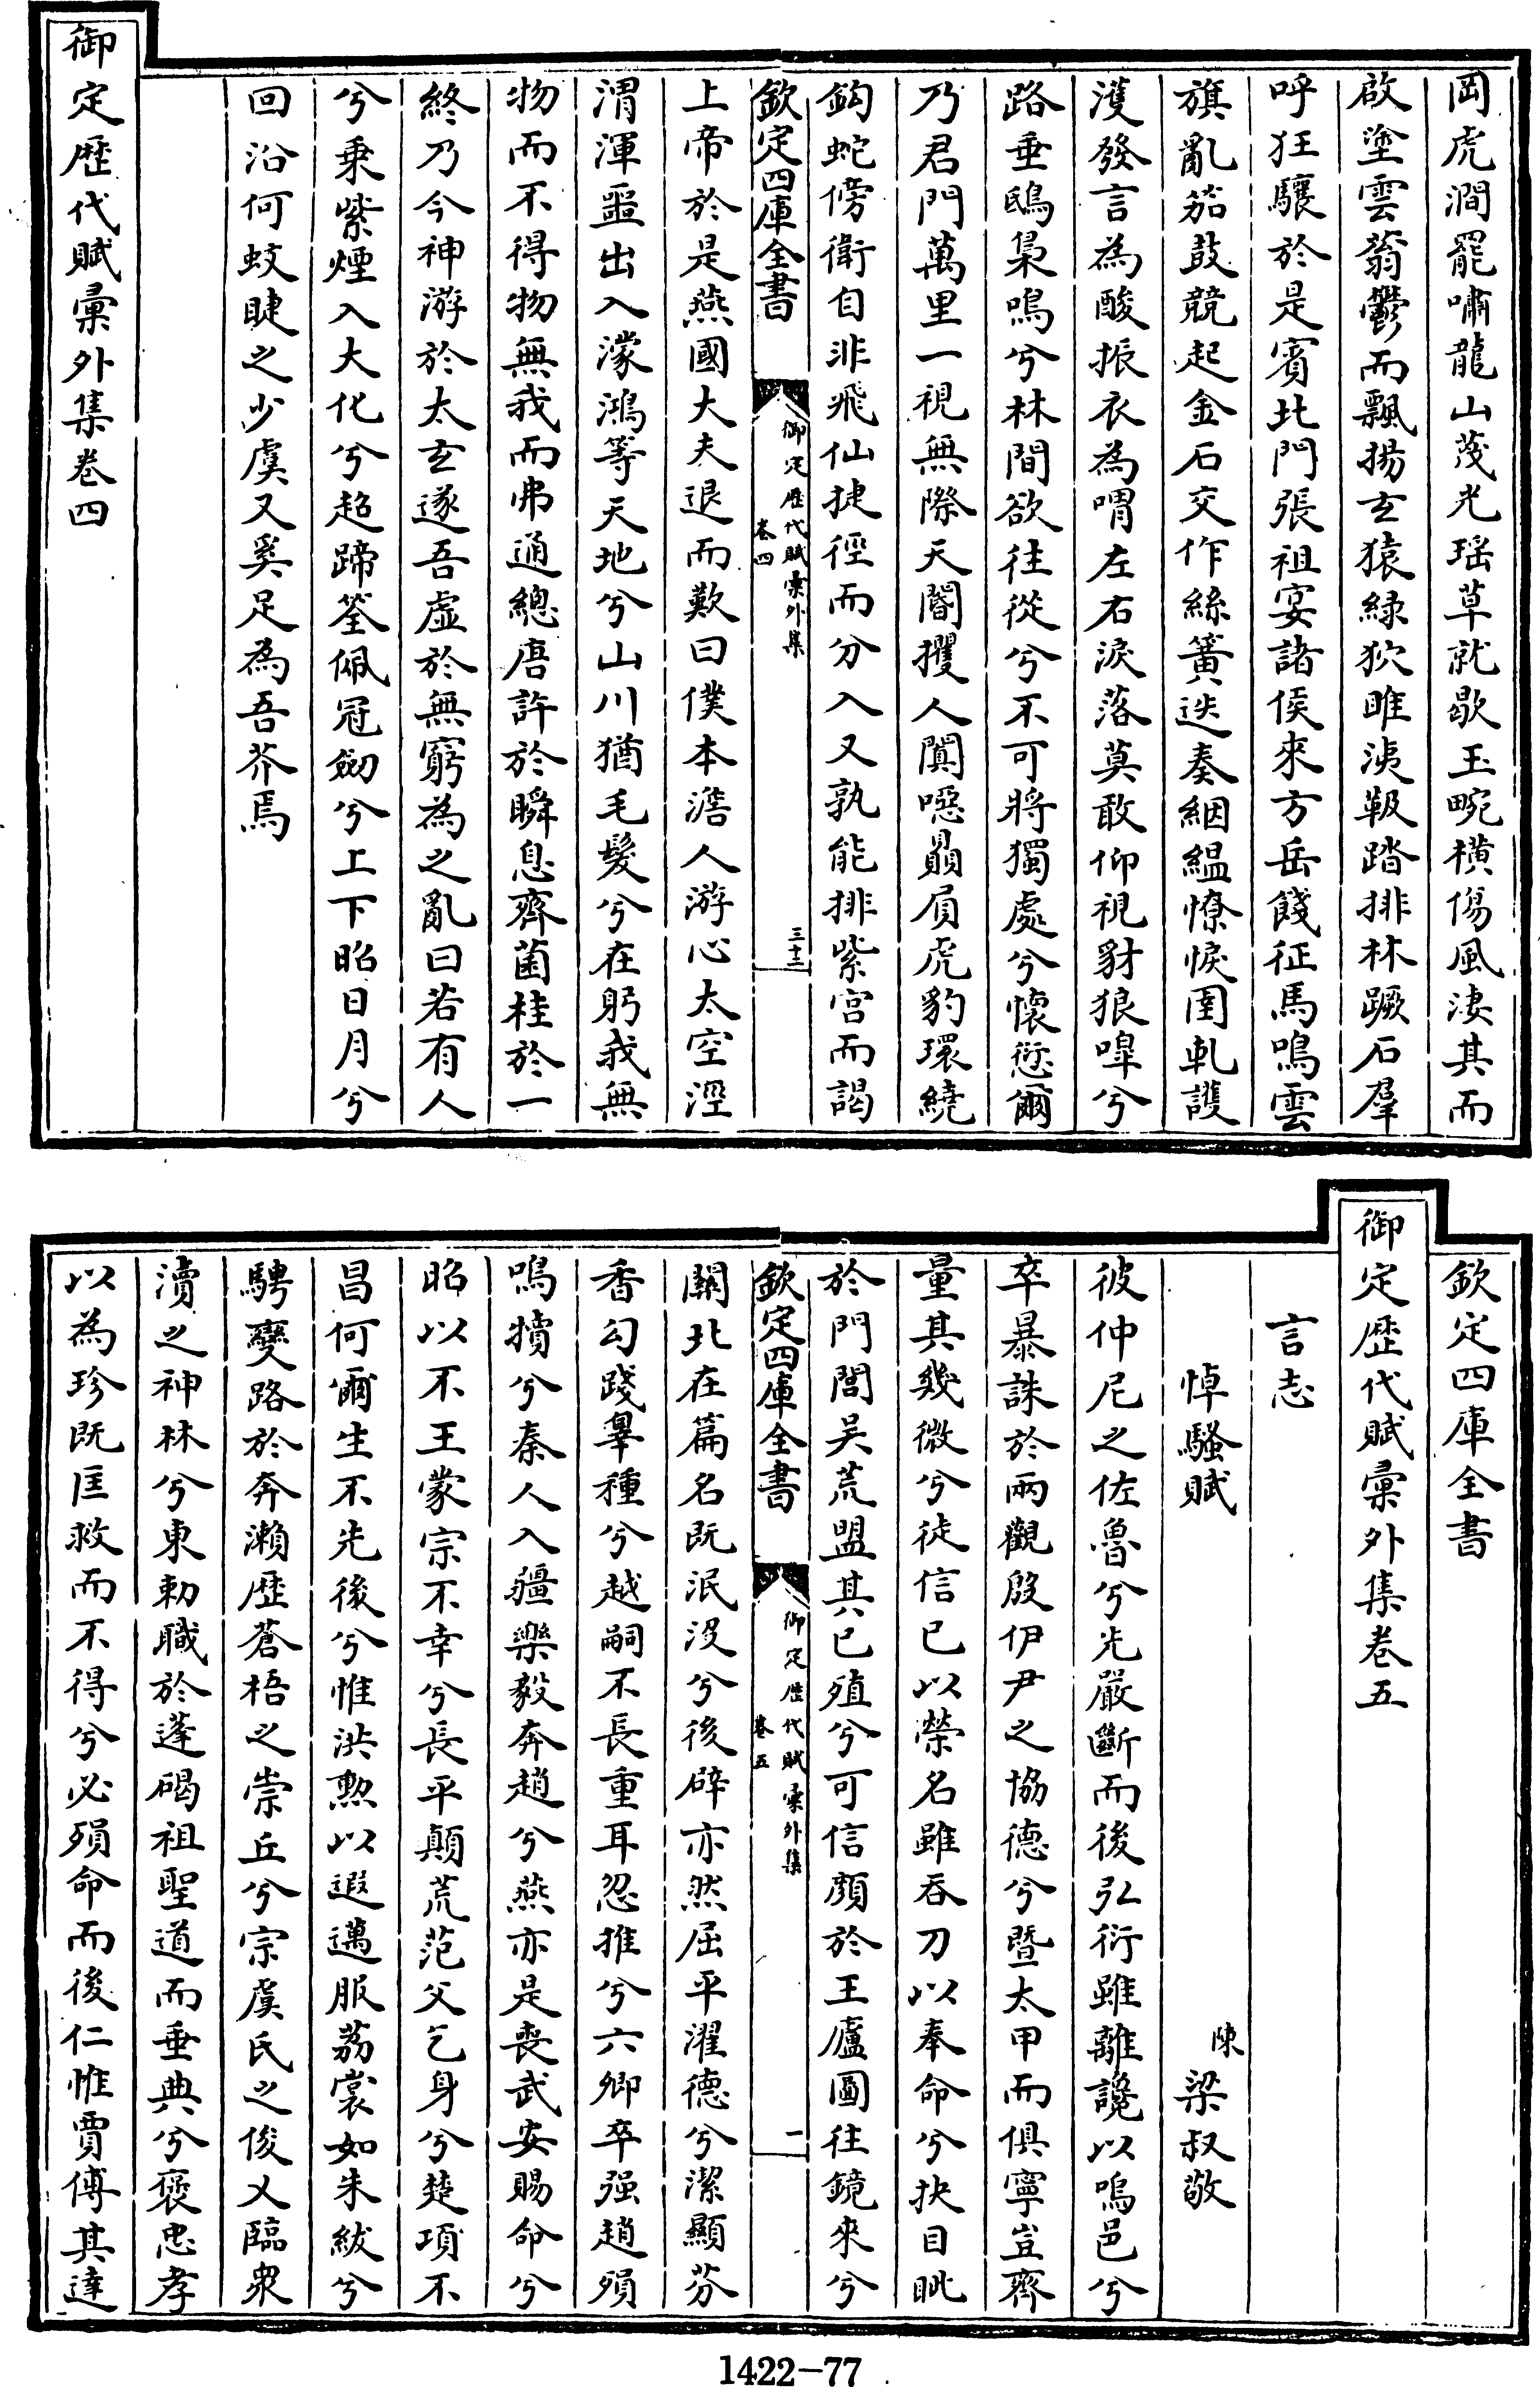 岡虎澗罷嘯龍山茂光瑶草就歇玉畹横傷風淒其而
啟塗雲蓊鬱而飄揚玄猿緑狖睢洟踏排林蹶石羣
呼狂驤於是賓北門張祖宴諸侯來方岳餞征馬鳴雲
旗亂笳鼓競起金石交作絲簧迭奏絪緼憭悷圉軋頀
濩發言為酸振衣為喟左右淚落莫敢仰視豺狼嘷兮
路垂鴟梟鳴兮林間欲往從兮不可將獨處兮懷愆爾
乃君門萬里一視無際天閽攫人闐噁贔屓虎豹環繞
鈎蛇傍衛自非飛仙捷徑而分入又孰能排紫宫而謁
欽定四庫全書
御定歴代賦彙外集
卷四
三十三
上帝於是燕國大夫退而歎曰僕本澹人游心太空涇
渭渾噩出入濛鴻等天地兮山川猶毛髮兮在躬我無
物而不得物無我而弗通總唐許於瞬息齊菌桂於一
終乃今神游於太玄遂吾虚於無窮為之亂曰若有人
兮乗紫煙入大化兮超蹄筌佩冠劒兮上下昭日月兮
回沿何蚊睫之少虞又奚足為吾芥焉
御定歴代賦彙外集卷四
欽定四庫全書
御定歴代賦彙外集卷五
言志
悼騷賦
陳
梁叔敬
彼仲尼之佐魯兮先嚴斷而後弘衍雖離讒以嗚邑兮
卒暴誅於兩觀殷伊尹之協德兮暨太甲而俱寧豈齊
量其幾微兮徒信已以榮名雖吞刀以奉命兮抉目眦
於門閭吴荒盟其已殖兮可信顔於王廬圖往鏡來兮
欽定四庫全書
御定歴代賦彙外集
卷五
一
關北在篇名既泯沒兮後辟亦然屈平濯德兮潔顯芬
香勾踐辠種兮越嗣不長重耳忽推兮六卿卒强趙殞
鳴犢兮秦人入疆樂毅奔趙兮燕亦是喪武安賜命兮
昭以不王蒙宗不幸兮長平顛荒范父乞身兮楚項不
昌何爾生不先後兮惟洪勲以遐邁服荔裳如朱紱兮
騁鸞路於奔瀨歴蒼梧之崇丘兮宗虞氏之俊乂臨衆
瀆之神林兮東勅職於蓬碣祖聖道而垂典兮褒忠孝
以為珍既匡救而不得兮必殞命而後仁惟賈傅其違
1422-77